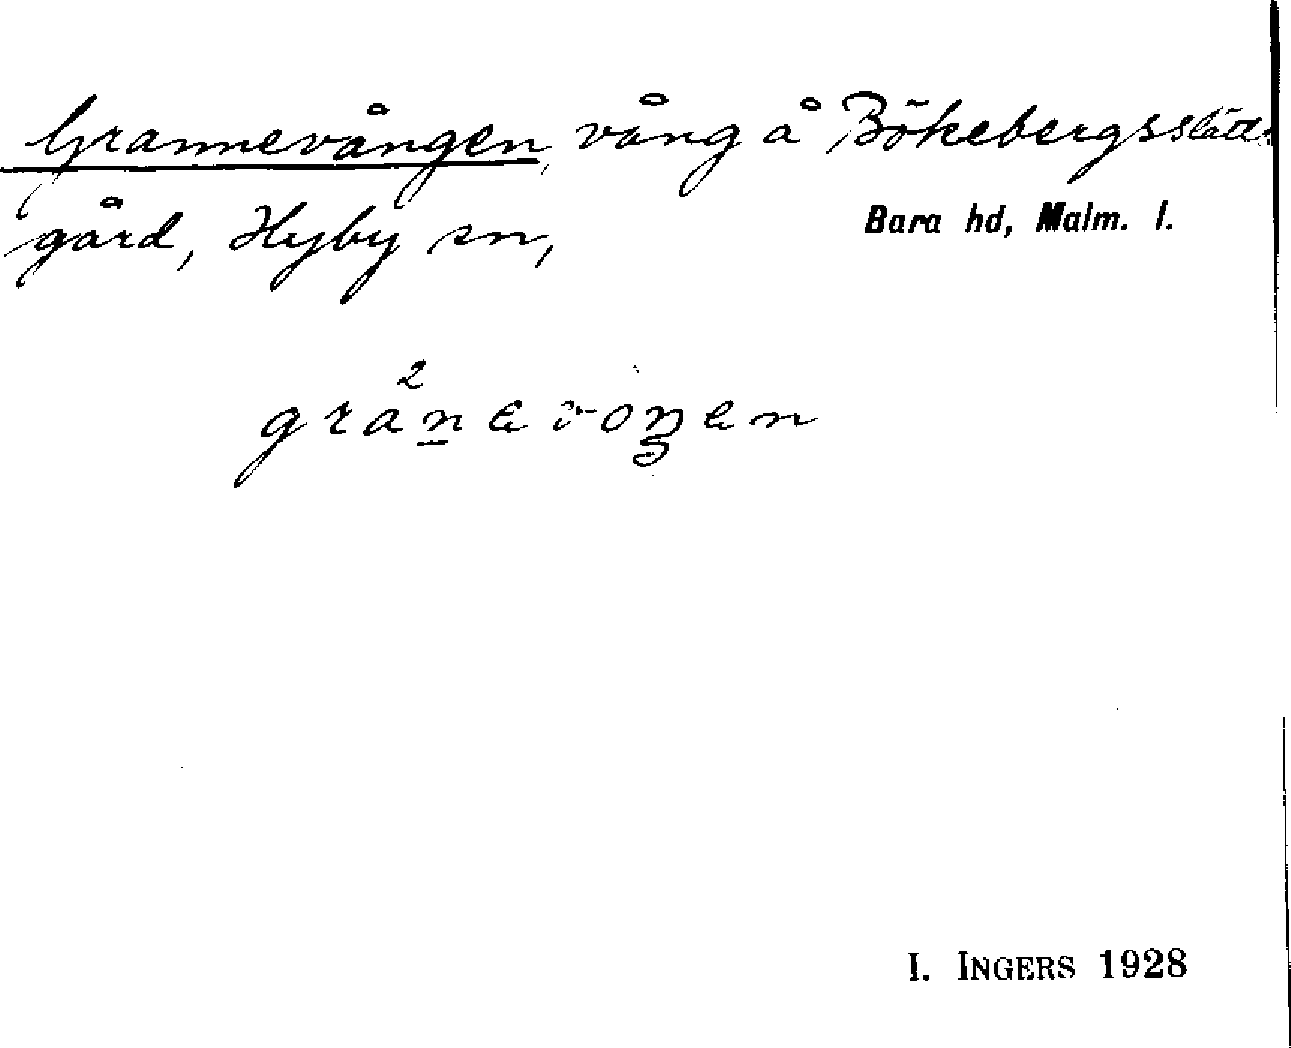 Grannevången, vång å Bökebergsslätts
gård, Hyby sn,
Bara hd, Malm. l.
grànevoŋen
I. INGERS 1928